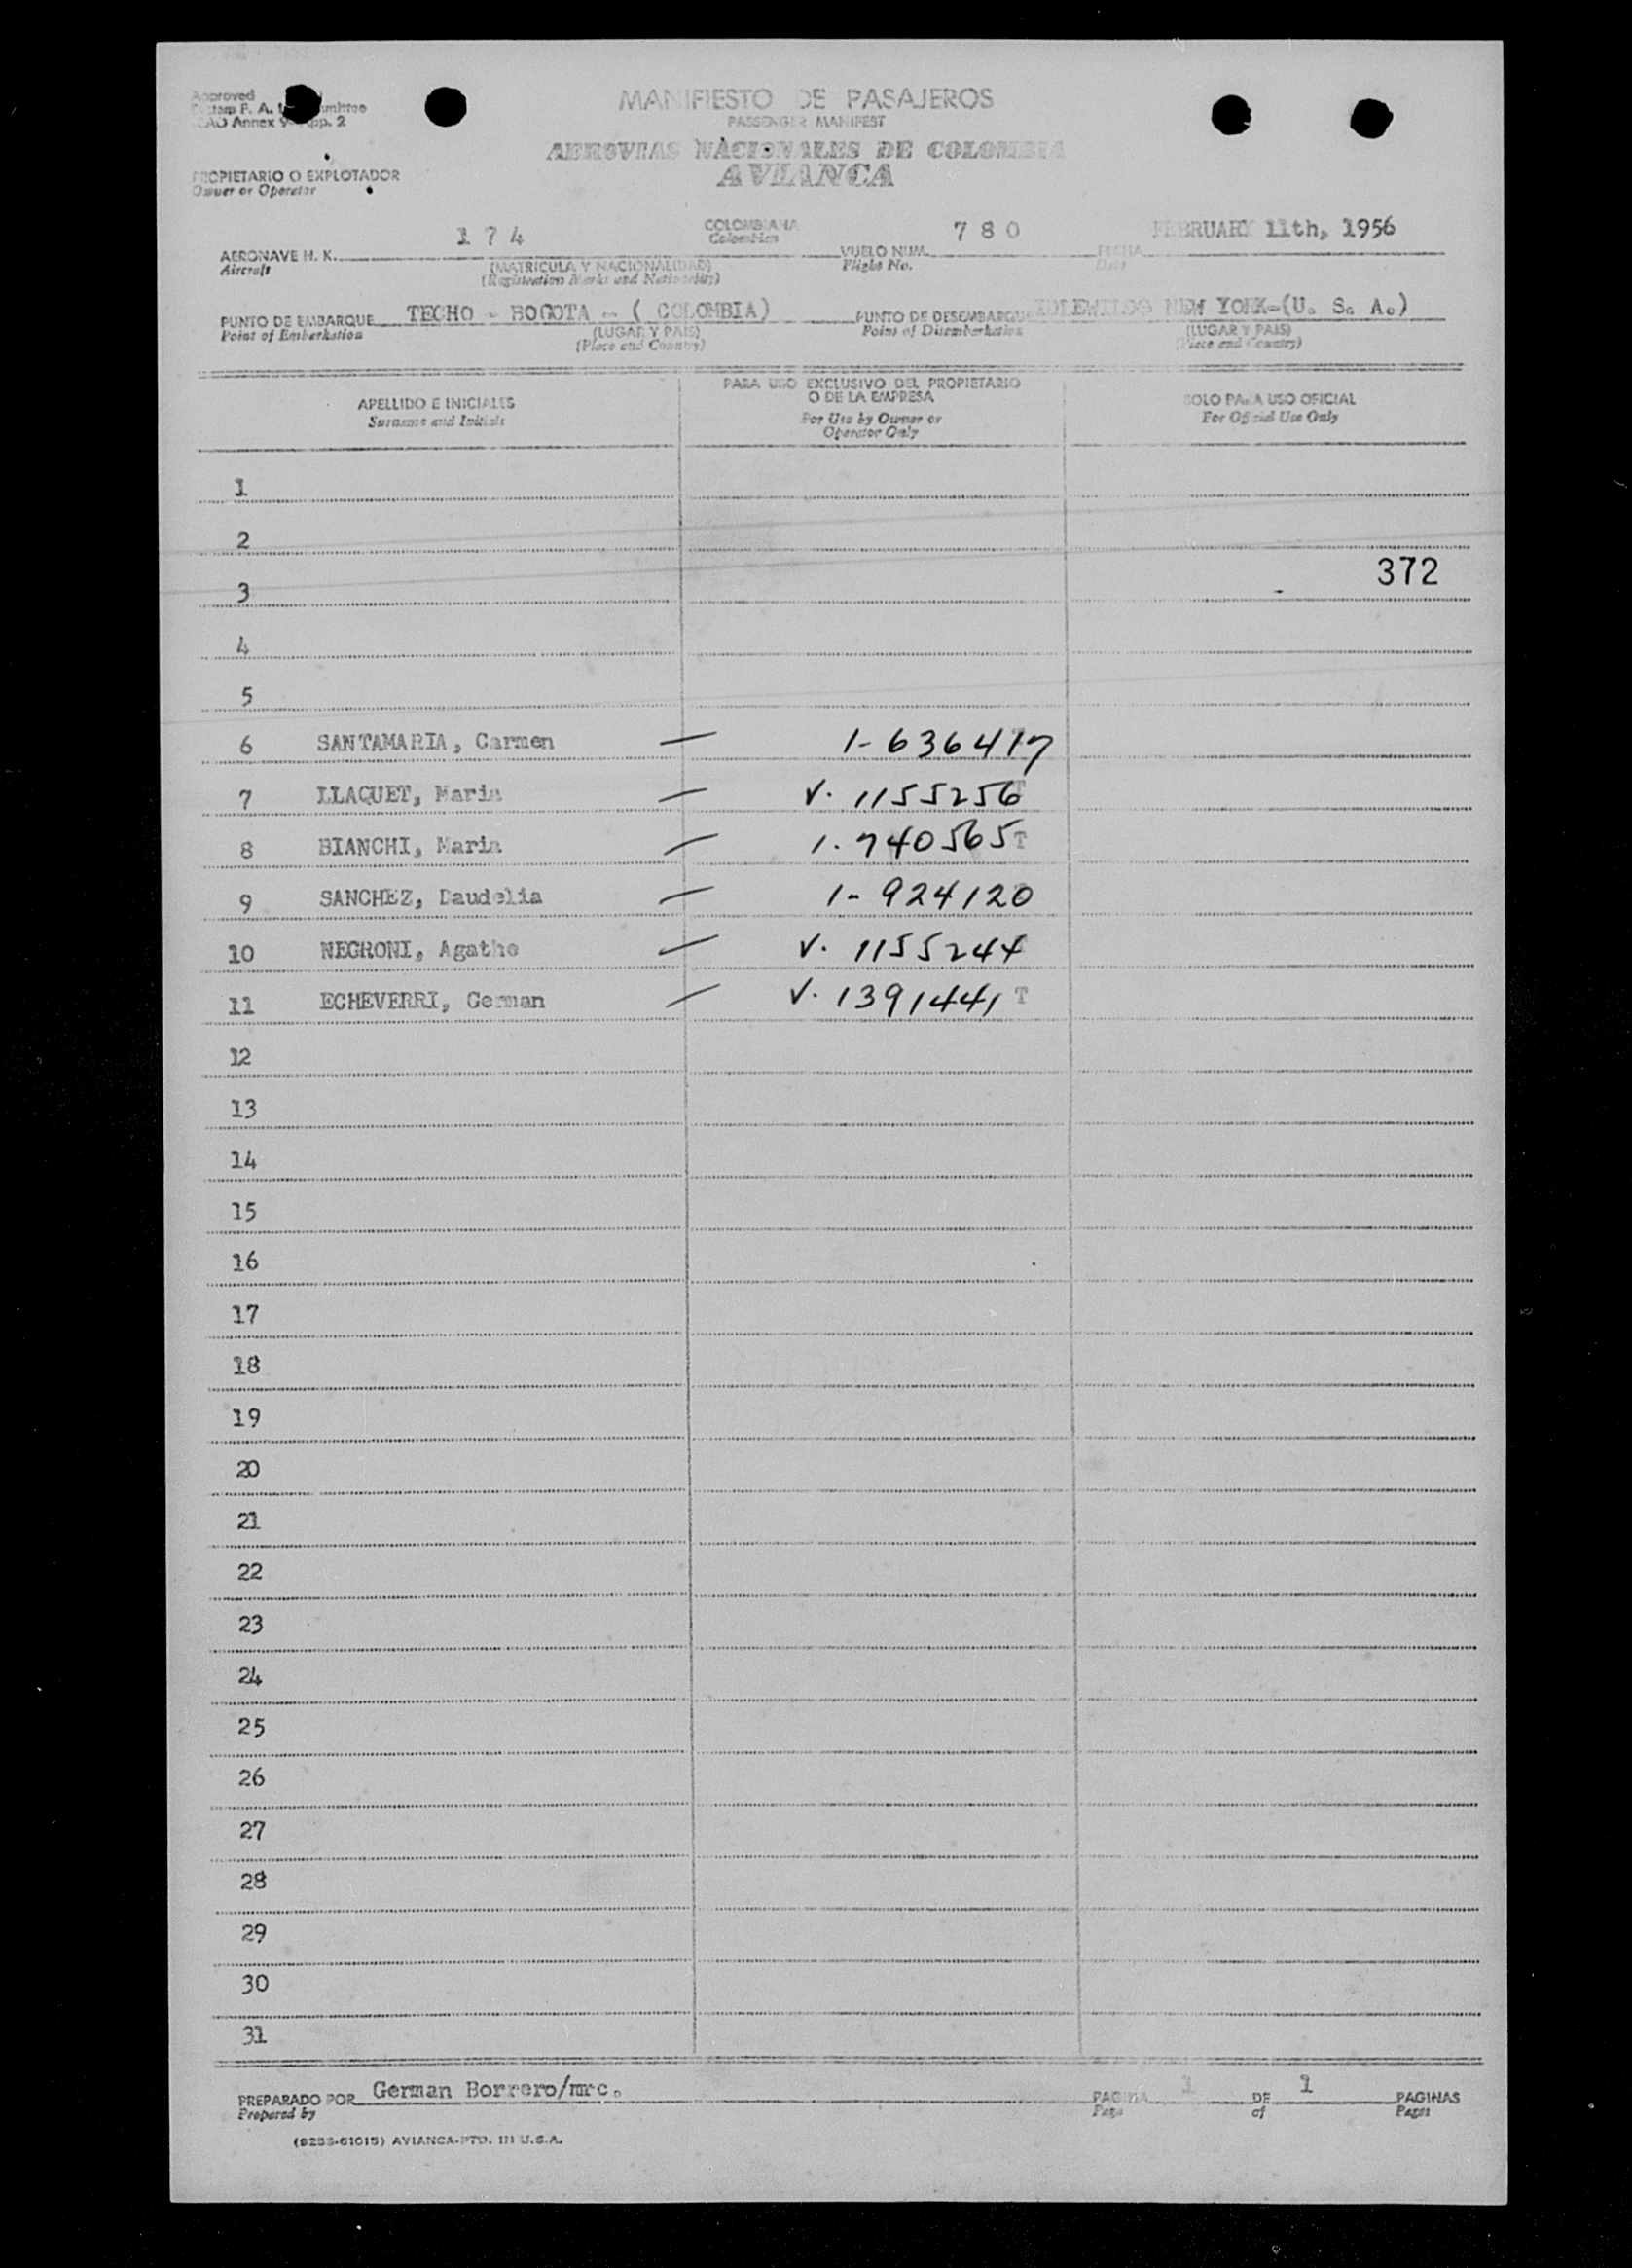 Approved
F. A. L.
Annex 9 App. 2
MANIFIESTO DE PASAJEROS
PASSENGER MANIFEST
AEROVIAS NACIONALES DE COLOMBIA
AVIANCA
PROPIETARIO O EXPLOTADOR
Owner or Operator
AERONAVE H. K. 174 COLOMBIANA VUELO NUM. 780 FECHA FEBRUARY 11th, 1956
Aircraft Colombian Flight No. Date
(MATRICULA Y NACIONALIDAD)
(Registration Marks and Nationality)
PUNTO DE EMBARQUE TECHO - BOGOTA - ( COLOMBIA) PUNTO DE DESEMBARQUE NEW YORK-(U. S. A.)
Point of Embarkation (LUGAR Y PAIS) Point of Disembarkation (LUGAR Y PAIS)
(Place and Country) (Place and Country)
APELLIDO E INICIALES
Surname and Initials
PARA USO EXCLUSIVO DEL PROPIETARIO
O DE LA EMPRESA
For Use by Owner or
Operator Only
SOLO PARA USO OFICIAL
For Official Use Only
1
2
372
3
4
5
6 SANTAMARIA, Carmen — 1-636417
7 LLAQUET, Maria — V. 1155256
8 BIANCHI, Maria — 1.740565 T
9 SANCHEZ, Daudelia — 1-924120
10 NEGRONI, Agathe — V. 1155244
11 ECHEVERRI, German — V. 1391441 T
12
13
14
15
16
17
18
19
20
21
22
23
24
25
26
27
28
29
30
31
PREPARADO POR German Borrero/mrc. PAGINA 1 DE 1 PAGINAS
Prepared by Page of Pages
(8253-61015) AVIANCA-PTD. IN U.S.A.